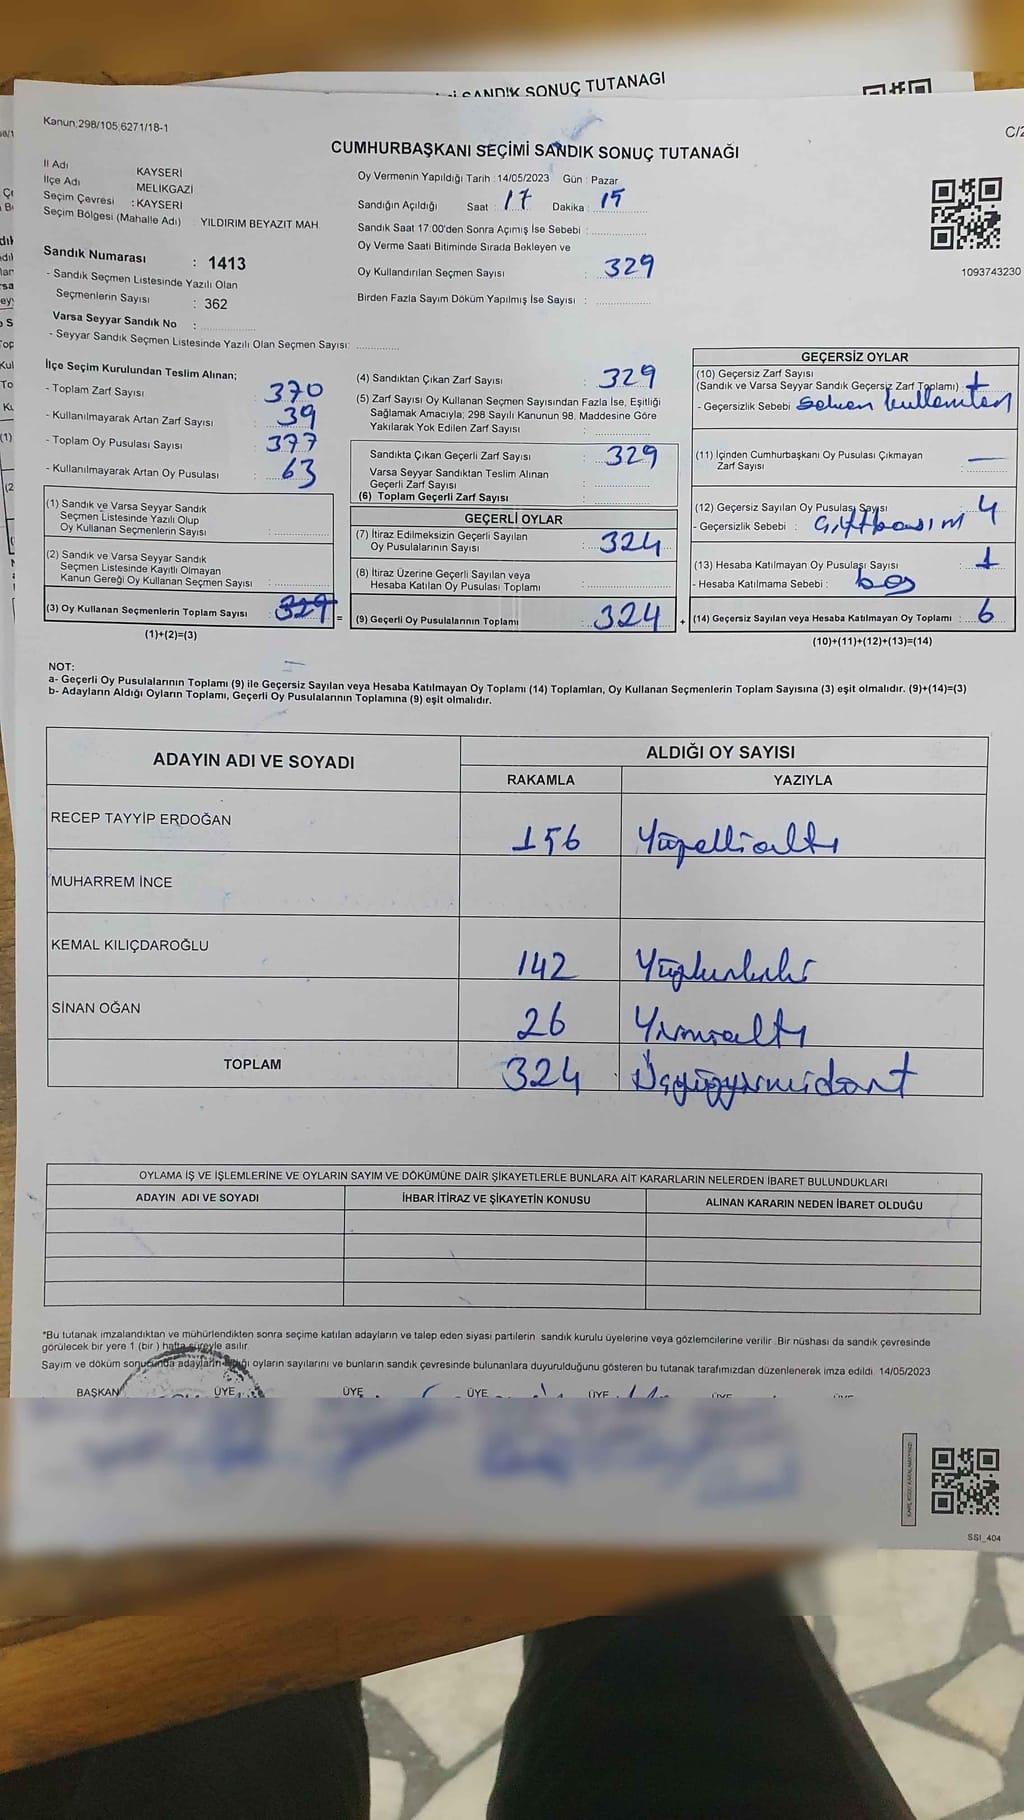 SANDIK SONUÇ TUTANAGI
Kanun;298/105;6271/18-1
C/2
CUMHURBAŞKANI SEÇİMİ SANDIK SONUÇ TUTANAĞI
İl Adı KAYSERİ
İlçe Adı MELİKGAZİ
Seçim Çevresi : KAYSERİ
Seçim Bölgesi (Mahalle Adı) : YILDIRIM BEYAZIT MAH
Sandık Numarası : 1413
- Sandık Seçmen Listesinde Yazılı Olan
Seçmenlerin Sayısı : 362
Varsa Seyyar Sandık No :
- Seyyar Sandık Seçmen Listesinde Yazılı Olan Seçmen Sayısı:
Oy Vermenin Yapıldığı Tarih : 14/05/2023 Gün : Pazar
Sandığın Açıldığı Saat : 17 Dakika : 15
Sandık Saat 17:00'den Sonra Açımış İse Sebebi :
Oy Verme Saati Bitiminde Sırada Bekleyen ve
Oy Kullandırılan Seçmen Sayısı : 329
Birden Fazla Sayım Döküm Yapılmış İse Sayısı :
1093743230
İlçe Seçim Kurulundan Teslim Alınan;
- Toplam Zarf Sayısı : 370
- Kullanılmayarak Artan Zarf Sayısı : 39
- Toplam Oy Pusulası Sayısı : 377
- Kullanılmayarak Artan Oy Pusulası : 63
(1) Sandık ve Varsa Seyyar Sandık
Seçmen Listesinde Yazılı Olup
Oy Kullanan Seçmenlerin Sayısı :
(2) Sandık ve Varsa Seyyar Sandık
Seçmen Listesinde Kayıtlı Olmayan
Kanun Gereği Oy Kullanan Seçmen Sayısı :
(3) Oy Kullanan Seçmenlerin Toplam Sayısı : 329 =
(1)+(2)=(3)
(4) Sandıktan Çıkan Zarf Sayısı : 329
(5) Zarf Sayısı Oy Kullanan Seçmen Sayısından Fazla İse, Eşitliği
Sağlamak Amacıyla; 298 Sayılı Kanunun 98. Maddesine Göre
Yakılarak Yok Edilen Zarf Sayısı :
Sandıkta Çıkan Geçerli Zarf Sayısı : 329
Varsa Seyyar Sandıktan Teslim Alınan
Geçerli Zarf Sayısı :
(6) Toplam Geçerli Zarf Sayısı :
GEÇERLİ OYLAR
(7) İtiraz Edilmeksizin Geçerli Sayılan
Oy Pusulalarının Sayısı : 324
(8) İtiraz Üzerine Geçerli Sayılan veya
Hesaba Katılan Oy Pusulası Toplamı :
(9) Geçerli Oy Pusulalarının Toplamı : 324 +
GEÇERSİZ OYLAR
(10) Geçersiz Zarf Sayısı
(Sandık ve Varsa Seyyar Sandık Geçersiz Zarf Toplamı) : 1
- Geçersizlik Sebebi
(11) İçinden Cumhurbaşkanı Oy Pusulası Çıkmayan
Zarf Sayısı : —
(12) Geçersiz Sayılan Oy Pusulası Sayısı : 4
- Geçersizlik Sebebi : Çiftbasım
(13) Hesaba Katılmayan Oy Pusulası Sayısı : 1
- Hesaba Katılmama Sebebi : boş
(14) Geçersiz Sayılan veya Hesaba Katılmayan Oy Toplamı : 6
(10)+(11)+(12)+(13)=(14)
NOT:
a- Geçerli Oy Pusulalarının Toplamı (9) ile Geçersiz Sayılan veya Hesaba Katılmayan Oy Toplamı (14) Toplamları, Oy Kullanan Seçmenlerin Toplam Sayısına (3) eşit olmalıdır. (9)+(14)=(3)
b- Adayların Aldığı Oyların Toplamı, Geçerli Oy Pusulalarının Toplamına (9) eşit olmalıdır.
ADAYIN ADI VE SOYADI ALDIĞI OY SAYISI
RAKAMLA YAZIYLA
RECEP TAYYİP ERDOĞAN 156 Yüzellialtı
MUHARREM İNCE
KEMAL KILIÇDAROĞLU 142 Yüzkırkiki
SİNAN OĞAN 26 Yirmialtı
TOPLAM 324 Üçyüzyirmidört
OYLAMA İŞ VE İŞLEMLERİNE VE OYLARIN SAYIM VE DÖKÜMÜNE DAİR ŞİKAYETLERLE BUNLARA AİT KARARLARIN NELERDEN İBARET BULUNDUKLARI
ADAYIN ADI VE SOYADI İHBAR İTİRAZ VE ŞİKAYETİN KONUSU ALINAN KARARIN NEDEN İBARET OLDUĞU
*Bu tutanak imzalandıktan ve mühürlendikten sonra seçime katılan adayların ve talep eden siyasi partilerin sandık kurulu üyelerine veya gözlemcilerine verilir. Bir nüshası da sandık çevresinde
görülecek bir yere 1 (bir) hafta süreyle asılır.
Sayım ve döküm sonucunda adayların aldığı oyların sayılarını ve bunların sandık çevresinde bulunanlara duyurulduğunu gösteren bu tutanak tarafımızdan düzenlenerek imza edildi. 14/05/2023
BAŞKAN ÜYE ÜYE ÜYE ÜYE ÜYE ÜYE
SSI_404